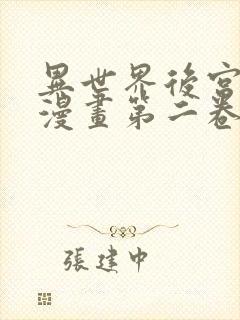 異世界後宮
漫畫第二卷
張建中